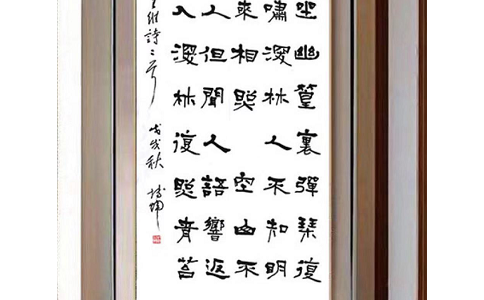 坐幽篁裏彈琴復
嘯深林人不知明
來相照空山不
人但聞人語響返
入深林復照青苔
王維詩二首 戊戌秋